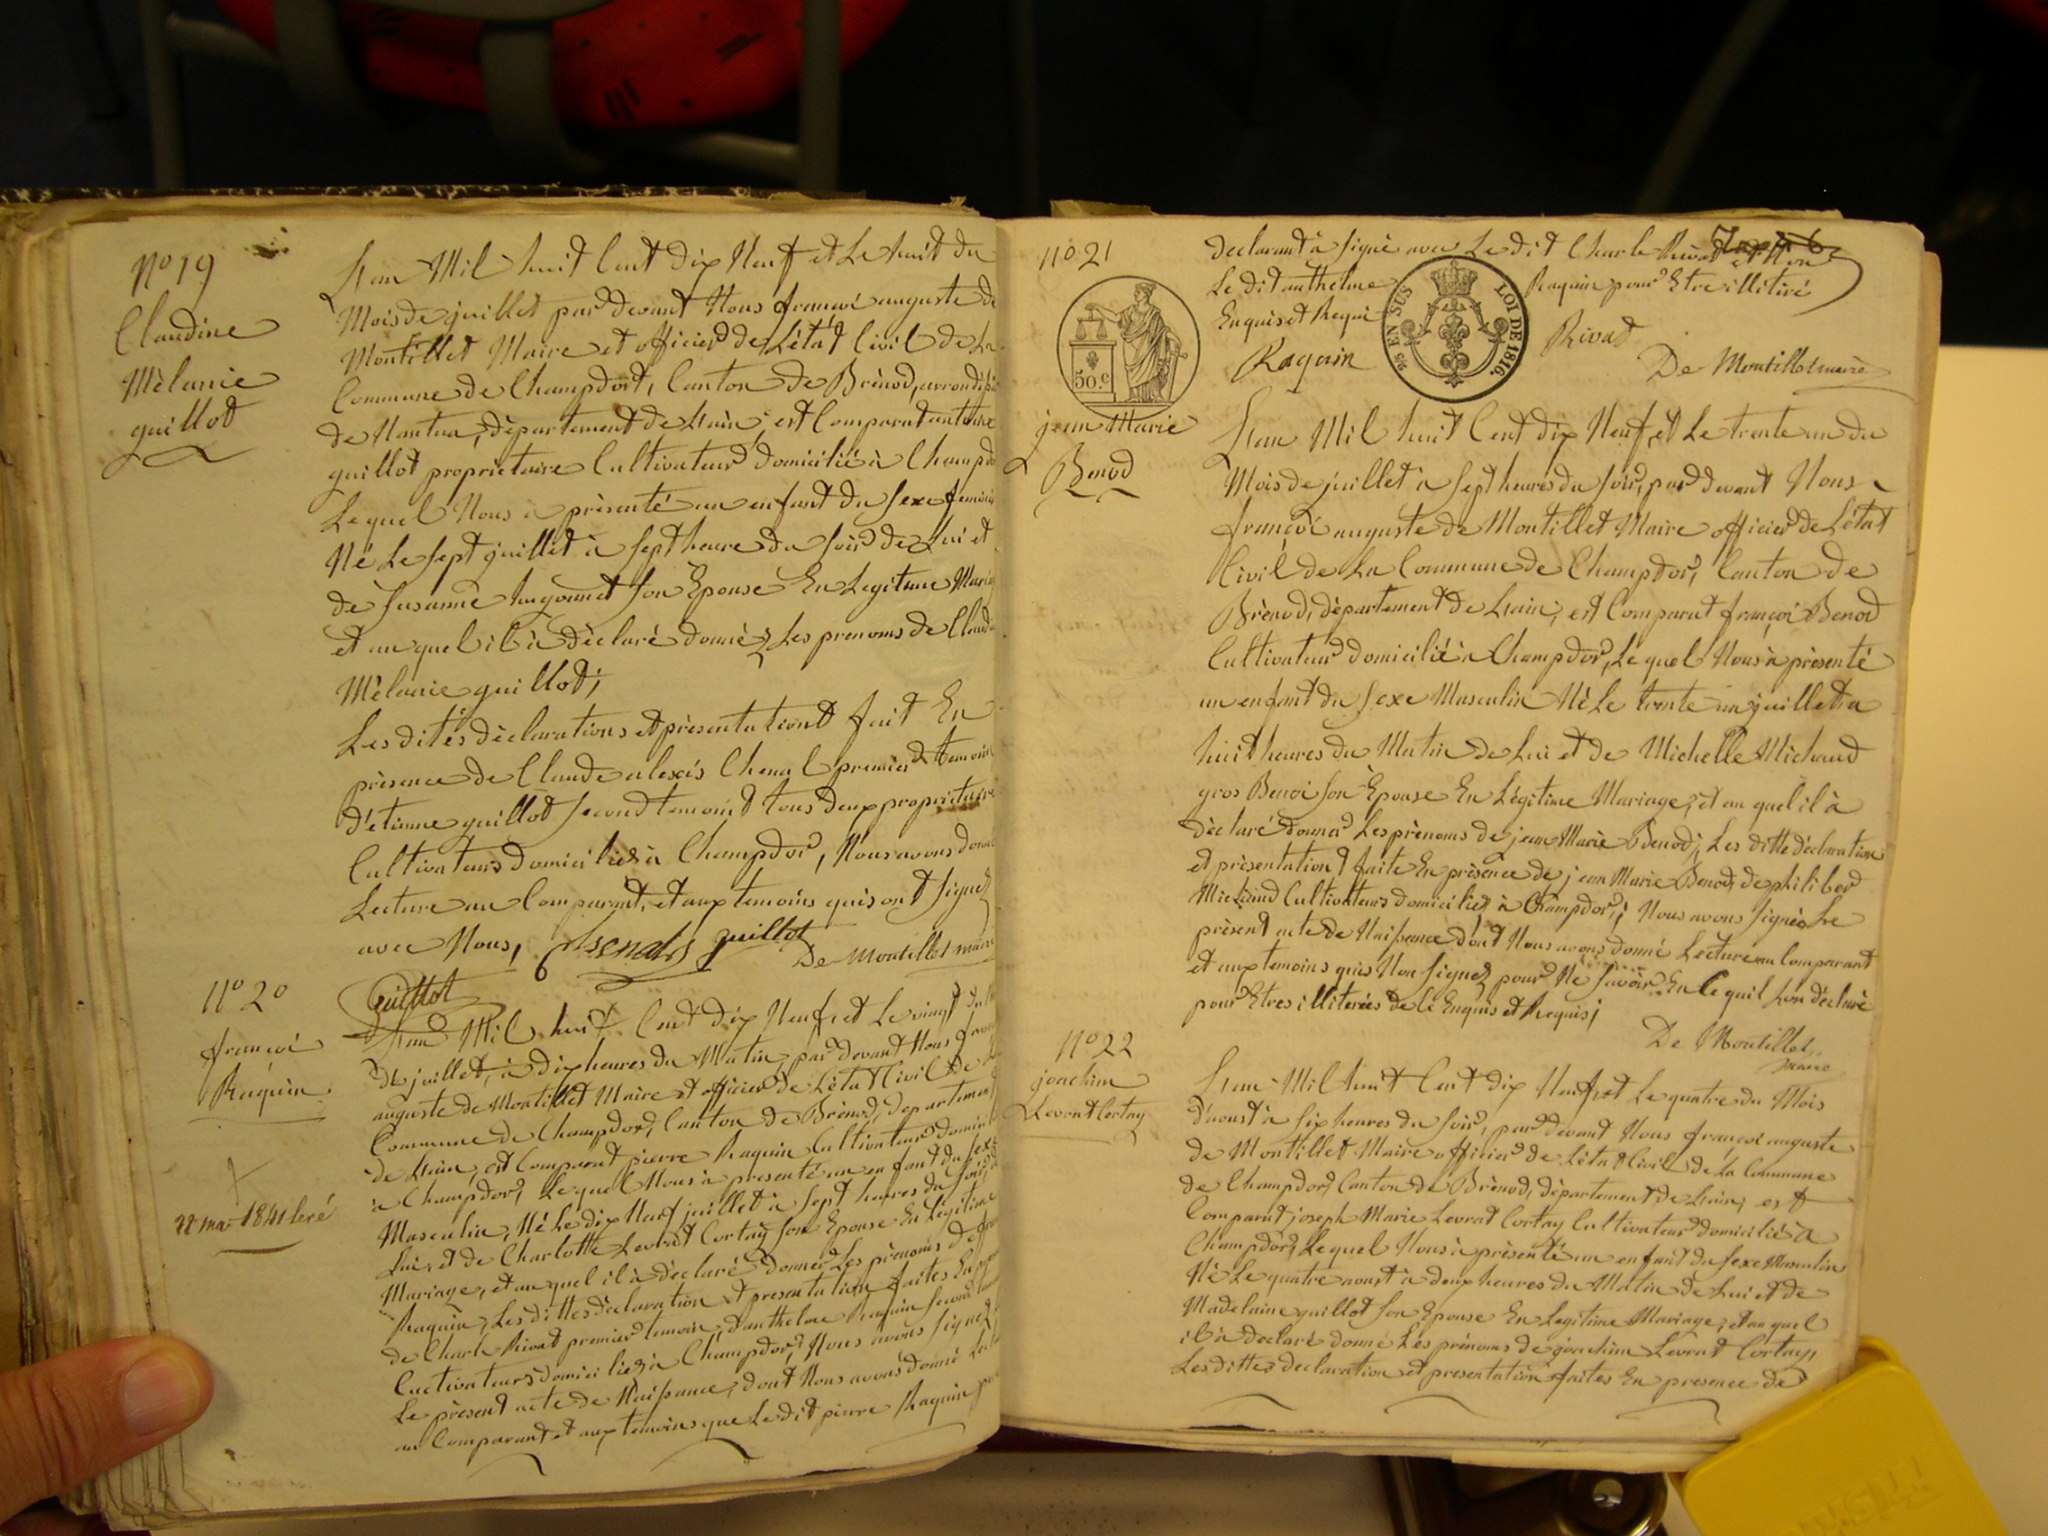 N° 19
Claudine
Mèlanie
guillot
L'an Mil huit Cent dix Neuf et Le huit du
Mois de juillet par devant Nous françoi auguste de
Montillet Maire et officier de L'état Civil de La
Commune de Champdort, Canton de Brènod, arrondiss
de Nantua, dèpartement de L'ain, est Comparut antoine
guillot propriètaire Cultivateur domicilié à Champdo
Lequel Nous à présenté un enfant du sexe feminin
Né Le sept juillet à sept heure du soir de Lui et
de susanne hugonnet son Epouse En Legitime Maria
et au quel il à dèclaré donnèr Les prenoms de Claud
Mèlanie guillot;
Les dites dèclarations et prèsentationt fait En
prèsence de Claude alexis Chenal premier temoin
d'etienne guillot second temoint tous deux proprietaire
Cultivateurs domiciliés à Champdor, Nous avons donné
Lecture au Comparant, et aux temoins quis ont signez
avec Nous, guillot
De Montillet maire
Guillot
N° 20
françoi
Raquin
22 mai 1841 levé
L'an Mil huit Cent dix Neuf, et Le vingt du
de juillet, à dix heures du Matin, par devant Nous franç
auguste de Montillet Maire et officier de L'état Civil de La
Commune de Champdor, Canton de Brènod, departement
de L'ain, est Comparut pierre Raquin Cultivateur domicil
à Champdor, Lequel Nous à presenté un enfant du sexe
Masculin, Né Le dix Neuf juillet à sept heures du soir, de
Lui, et de Charlotte Levrat Cortay son Epouse En Légitime
Mariage, et au quel il à dèclaré donner Les prènoms de fran
Raquin, Les dittes dèclaration et presentation faites En pre
de Charle Rivat premier temoin, d'anthelme Raquin second tem
Cuctivateurs domiciliés à Champdor, Nous avons signez
Le prèsent acte de Naissance, dont Nous avons donné Lect
au Comparant et aux temoins que Le dit pierre Raquin
N° 21
jean Marie
Benod
declarant à signè avec Le dit Charle Rivat et Non
Le dit anthelme Raquin pour Etre illitiré
Enquis et Requi
Raquin Rivat
De Montillet maire
50.c
25 EN SUS LOI DE 1816.
L'an Mil huit Cent dix Neuf, et Le trente un du
Mois de juillet à sept heures du soir, par devant Nous
françoi auguste de Montillet Maire officier de L'état
Civil de La Commune de Champdor, Canton de
Brènod, dèpartement de L'ain, est Comparut françoi Benod
Cultivateur domicilié à Champdor, Le quel Nous à prèsenté
un enfant du sexe Masculin Né Le trente un juillet a
huit heures du Matin de Lui et de Michelle Michaud
gros Benoi son Epouse En Légitime Mariage, et au quel il à
dèclaré donner Les prènoms de jean Marie Benod; Les ditte dèclaration
et prèsentationt faite En prèsence de jean Marie Benod, de philiber
Michaud Cultivateurs domiciliés à Champdor; Nous avons signès Le
prèsent acte de Naissance dont Nous avons donné Lecture au Comparant
et aux temoins quis Non signez pour Ne savoir En Ce quil lon dèclaré
pour Etres illiterés de Ce Enquis et Requis;
De Montillet
maire
N° 22
joachim
Levrat Cortay
L'an Mil huit Cent dix Neuf, et Le quatre du Mois
d'aoust à six heures du soir, par devant Nous françoi auguste
de Montillet Maire officier de L'état Civil de La Commune
de Champdor, Canton de Brènod, dèpartement de L'ain, est
Comparut joseph Marie Levrat Cortay Cultivateur domicilié à
Champdor, Lequel Nous à prèsenté un enfant du sexe Masculin
Né Le quatre aoust à deux heures du Matin de Lui et de
Madelaine guillot son Epouse En Legitime Mariage, et au quel
il à declaré donné Les prénoms de joachim Levrat Cortay,
Les dittes declaration et presentation faites En presence de